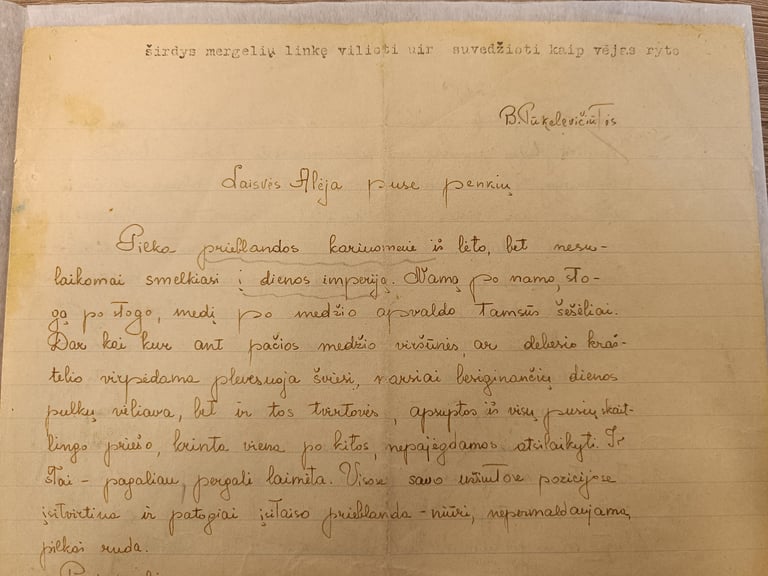 širdys mergelių linkę vilioti uir suvedžioti kaip vėjas ryto
B. Pūkelevičiūtis
Laisvės Alėja puse penkių
Pilka prieblandos kariuomenė iš lėto, bet nesu-
laikomai smelkiasi į dienos imperiją. Namą po namo, sto-
gą po stogo, medį po medžio apvaldo tamsūs šešėliai.
Dar kai kur ant pačios medžio viršūnės, ar debesio kraš-
telio virpėdama plevėsuoja šviesi, narsiai besiginančių dienos
pulkų vėliava, bet ir tos tvirtovės, apsuptos iš visų pusių skait-
lingo priešo, krinta viena po kitos, nepajėgdamos atsilaikyti. Ir
štai - pagaliau, pergalė laimėta. Visose savo užimtose pozicijose
įsitvirtina ir patogiai įsitaiso prieblanda - niūri, nepermaldaujama,
pilkai ruda.